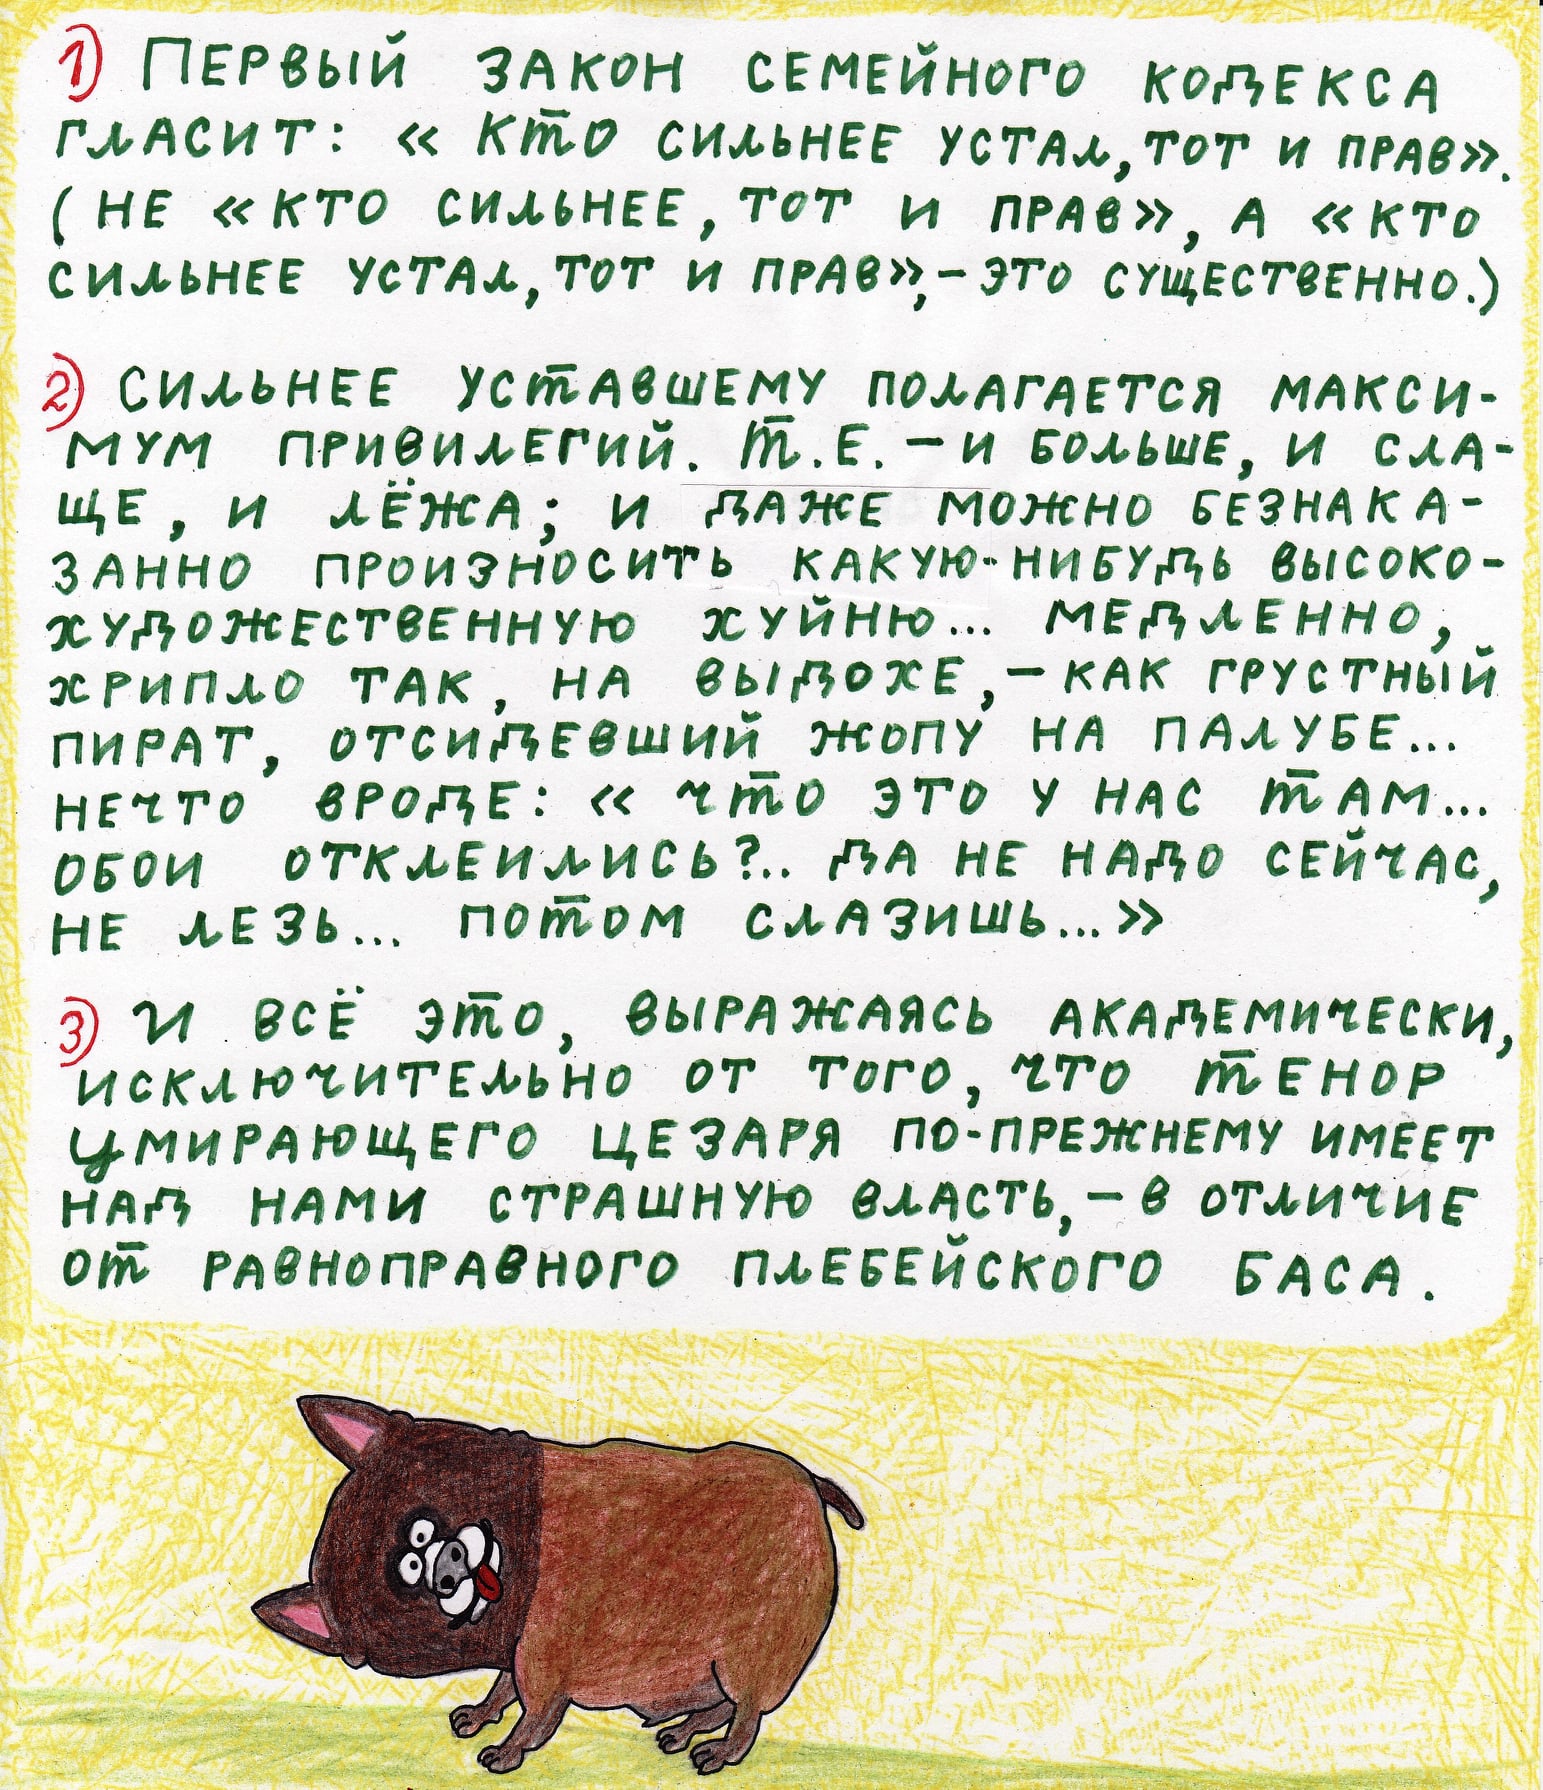 1) Первый закон семейного кодекса
гласит: «Кто сильнее устал, тот и прав».
(Не «кто сильнее, тот и прав», а «кто
сильнее устал, тот и прав», – это существенно.)
2) Сильнее уставшему полагается макси-
мум привилегий. Т.е. – и больше, и сла-
ще, и лёжа; и даже можно безнака-
занно произносить какую-нибудь высоко-
художественную хуйню... Медленно,
хрипло так, на выдохе, – как грустный
пират, отсидевший жопу на палубе...
Нечто вроде: «Что это у нас там...
обои отклеились?.. Да не надо сейчас,
не лезь... потом слазишь...»
3) И всё это, выражаясь академически,
исключительно от того, что тенор
умирающего цезаря по-прежнему имеет
над нами страшную власть, – в отличие
от равноправного плебейского баса.